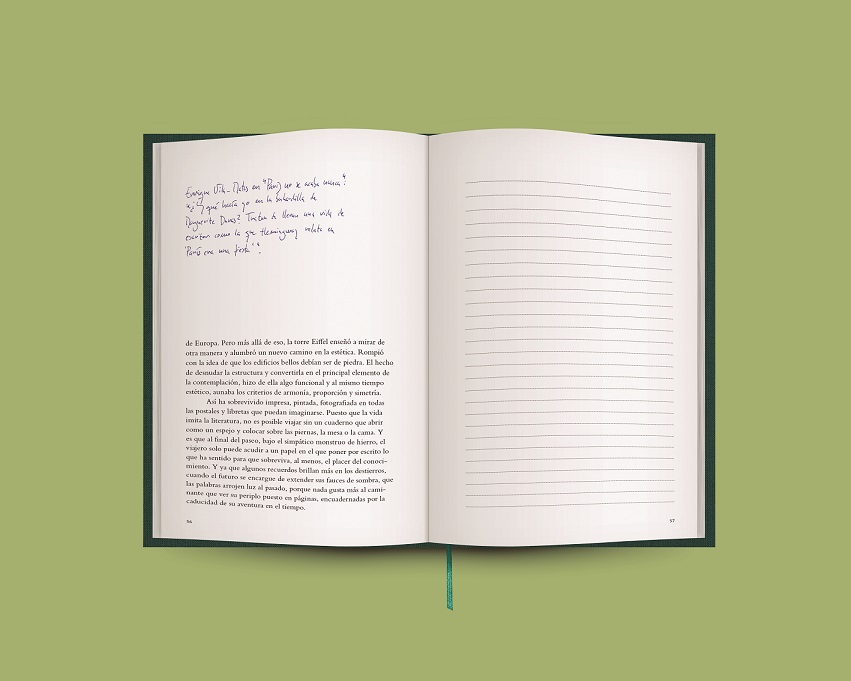 Enrique Vila-Matas en "París no se acaba nunca":
"¿Y qué hacía yo en la buhardilla de
Marguerite Duras? Tratar de llevar una vida de
escritor como la que Hemingway relata en
París era una fiesta".
de Europa. Pero más allá de eso, la torre Eiffel enseñó a mirar de
otra manera y alumbró un nuevo camino en la estética. Rompió
con la idea de que los edificios bellos debían ser de piedra. El hecho
de desnudar la estructura y convertirla en el principal elemento de
la contemplación, hizo de ella algo funcional y al mismo tiempo
estético, aunaba los criterios de armonía, proporción y simetría.
Así ha sobrevivido impresa, pintada, fotografiada en todas
las postales y libretas que puedan imaginarse. Puesto que la vida
imita la literatura, no es posible viajar sin un cuaderno que abrir
como un espejo y colocar sobre las piernas, la mesa o la cama. Y
es que al final del paseo, bajo el simpático monstruo de hierro, el
viajero solo puede acudir a un papel en el que poner por escrito lo
que ha sentido para que sobreviva, al menos, el placer del conoci-
miento. Y ya que algunos recuerdos brillan más en los destierros,
cuando el futuro se encargue de extender sus fauces de sombra, que
las palabras arrojen luz al pasado, porque nada gusta más al cami-
nante que ver su periplo puesto en páginas, encuadernadas por la
caducidad de su aventura en el tiempo.
56
57